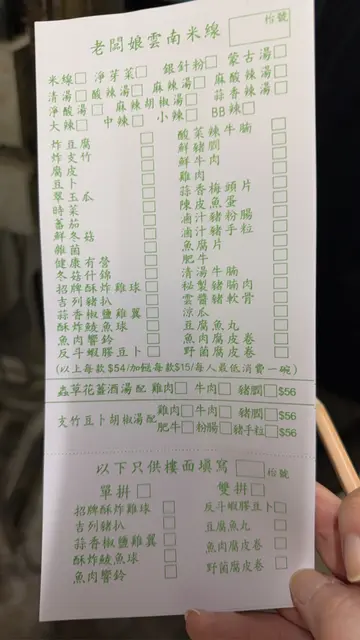 老闆娘雲南米線
枱號
米線□ 淨芽菜□ 銀針粉□ 蒙古湯□
清湯□ 酸辣湯□ 麻辣湯□ 麻酸辣湯□
淨酸湯□ 麻辣胡椒湯□ 蒜香辣湯□
大辣□ 中辣□ 小辣□ BB辣□
炸豆腐□ 酸菜辣牛腩□
炸支竹□ 鮮豬膶□
腐皮□ 鮮牛肉□
豆卜□ 雞肉□
翠玉瓜□ 蒜香梅頭片□
時菜□ 陳皮魚蛋□
蕃茄□ 滷汁豬粉腸□
鮮冬菇□ 滷汁豬手粒□
雜菌□ 魚腐片□
健康有營□ 肥牛□
冬菇什錦□ 清湯牛腩□
招牌酥炸雞球□ 秘製豬腩肉□
吉列豬扒□ 雲醬豬軟骨□
蒜香椒鹽雞翼□ 涼瓜□
酥炸鯪魚球□ 豆腐魚丸□
魚肉響鈴□ 魚肉腐皮卷□
反斗蝦膠豆卜□ 野菌腐皮卷□
(以上每款$54/加餸每款$15/每人最低消費一碗)
蟲草花薑酒湯配 雞肉□ 牛肉□ 豬膶□$56
支竹豆卜胡椒湯配 雞肉□ 牛肉□ 豬膶□$56
肥牛□ 粉腸□ 豬手粒□$56
以下只供樓面填寫 □枱號
單拼□ 雙拼□
招牌酥炸雞球□ 反斗蝦膠豆卜□
吉列豬扒□ 豆腐魚丸□
蒜香椒鹽雞翼□ 魚肉腐皮卷□
酥炸鯪魚球□ 野菌腐皮卷□
魚肉響鈴□